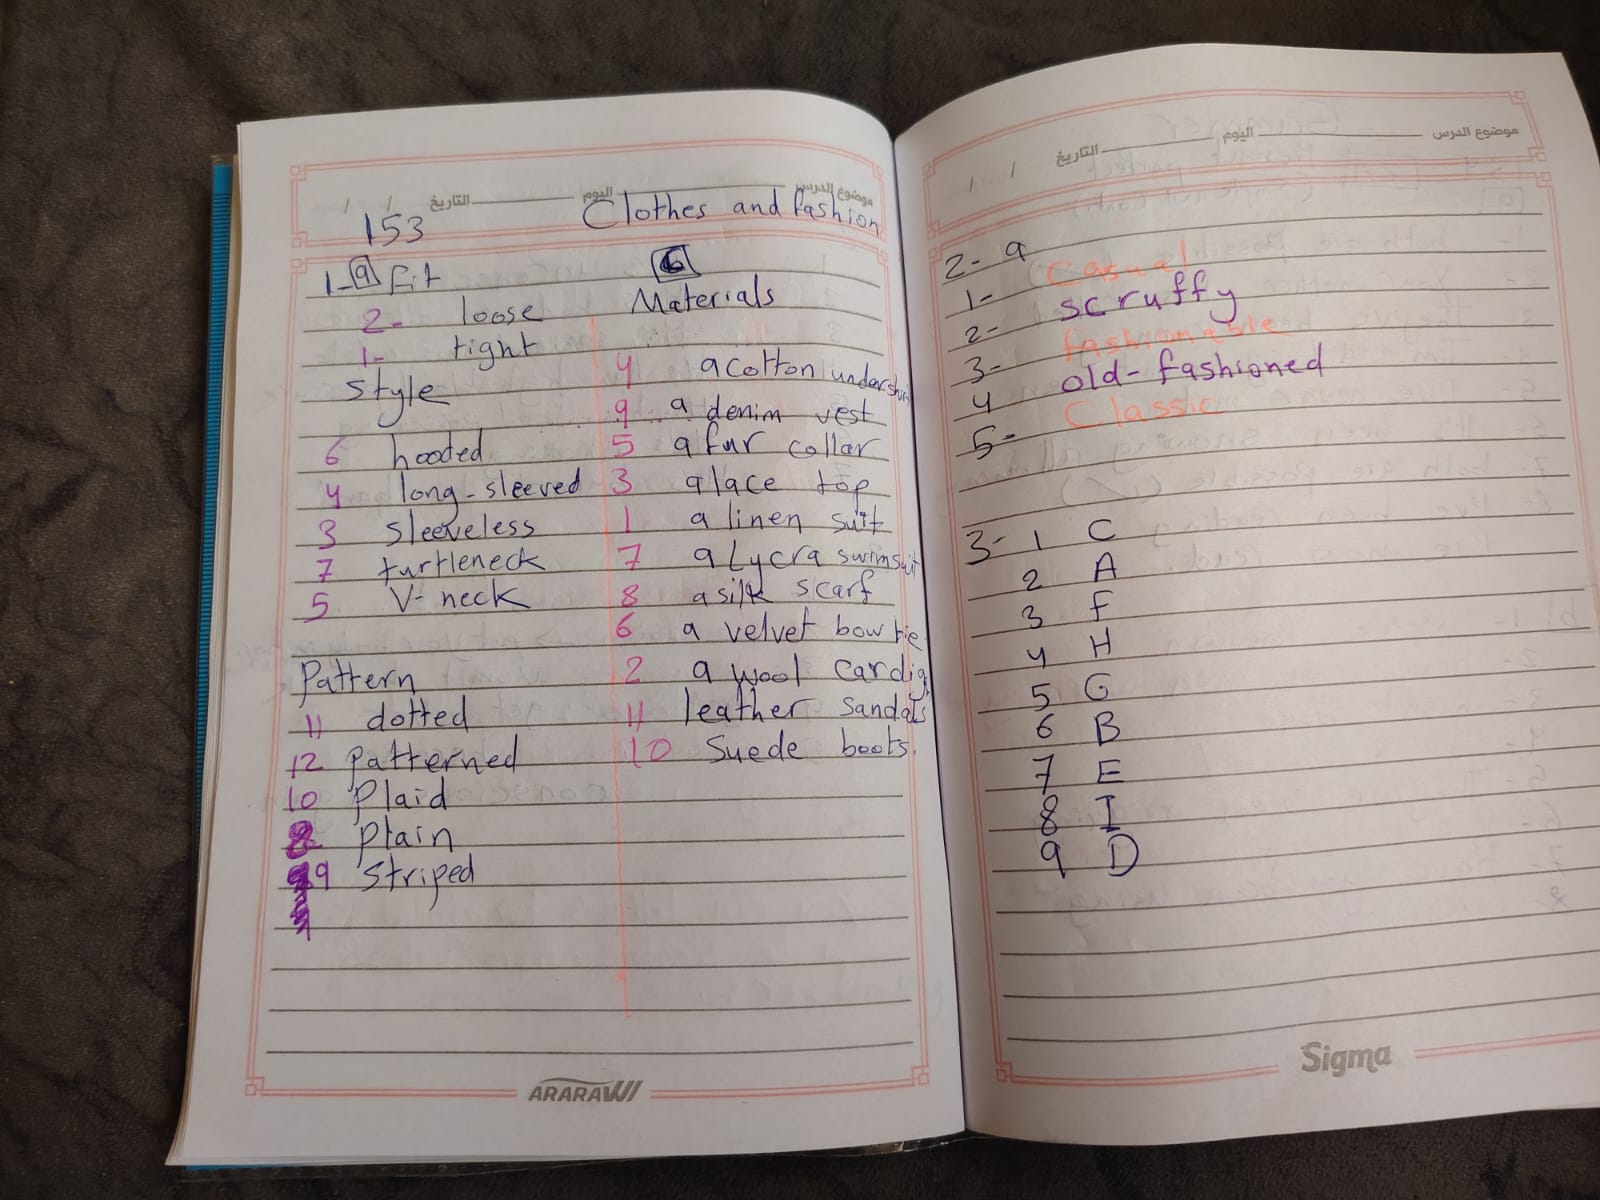 موضوع الدرس اليوم التاريخ / /
153 Clothes and fashion
1- a Fit
2- loose
1- tight
Style
6 hooded
4 long-sleeved
3 sleeveless
7 turtleneck
5 V-neck
Pattern
11 dotted
12 Patterned
10 Plaid
8 Plain
9 Striped
Materials
4 a cotton undershirt
9 a denim vest
5 a fur collar
3 a lace top
1 a linen suit
7 a Lycra swimsuit
8 a silk scarf
6 a velvet bow tie
2 a wool cardig
11 leather sandals
10 Suede boots.
ARARAWI
موضوع الدرس اليوم التاريخ / /
2- a
1- Casual
2- scruffy
3- fashionable
4 old-fashioned
5- Classic
3- 1 C
2 A
3 F
4 H
5 G
6 B
7 E
8 I
9 D
Sigma